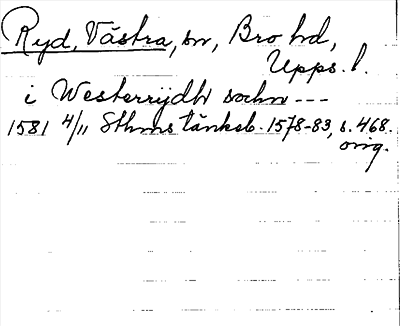 Ryd, Västra, sn, Bro hd,
Upps. l.
i Westerrijdh sochn ---
1581 4/11 Sthms tänkeb. 1578-83, s. 468.
orig.